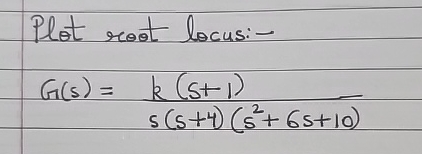 Plot root locus:-
G(s) = k(s+1)
s(s+4)(s²+6s+10)